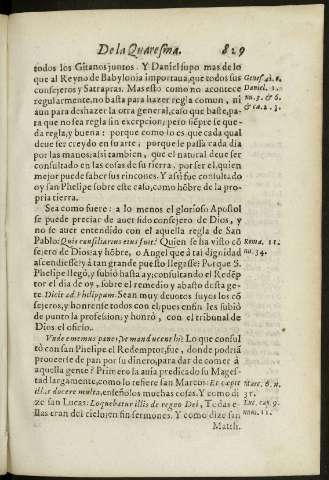 De la Quaresma. 829
todos los Gitanos juntos. Y Daniel supo mas de lo
que al Reyno de Babylonia importaua, que todos sus
consejeros y Satrapas. Mas esto como no acontece
regularmente, no basta para hazer regla comun, ni
aun para deshazer la otra general, caso que baste, pa-
ra que no sea regla sin excepcion; pero siẽpre le que-
da regla, y buena: porque como lo es que cada qual
deue ser creydo en su arte; porque le passa cada dia
por las manos; assi tambien, que el natural deue ser
consultado en las cosas de su tierra, por ser el, quien
mejor puede saber sus rincones. Y assi fue consultado
oy san Phelipe sobre este caso, como hõbre de la pro
pria tierra.
Genes. 41. 8.
Daniel. 1.
nu. 5. & 6.
& ca. 2. 3.
Sea como fuere: a lo menos el glorioso Apostol
se puede preciar de auer sido consejero de Dios, y
no se auer entendido con el aquella regla de San
Pablo: Quis consiliarius eius fuit? Quien se ha visto cõ
sejero de Dios: a y hõbre, o Angel que à tal dignidad
ascendiesse, y à tan grande puesto llegasse? Porque S.
Phelipe llegó, y subió hasta ay; consultando el Redẽp
tor el dia de oy, sobre el remedio y abasto desta ge-
te. Dicit ad Philippum. Sean muy deuotos suyos los cõ
sejeros, y honrense todos con el; pues en fin les subió
de punto la profession, y honró, con el tribunal de
Dios el oficio.
Roma. 11.
nu. 34.
Vnde ememus panes, vt manducent hi? Lo que consul
tò con san Phelipe el Redemptor, fue, donde podria
proueerse de pan por su dinero, para dar de comer à
aquella gente? Primero la auia predicado su Mages-
tad largamente, como lo refiere san Marcos: Et cæpit
illos docere multa, enseñolos muchas cosas. Y como di
ze san Lucas: Loquebatur illis de regno Dei, Todas e-
llas eran del cielo; en fin sermones. Y como dize san
Marc. 6. n.
Luc. cap. 9.
num. 11.
Matth.